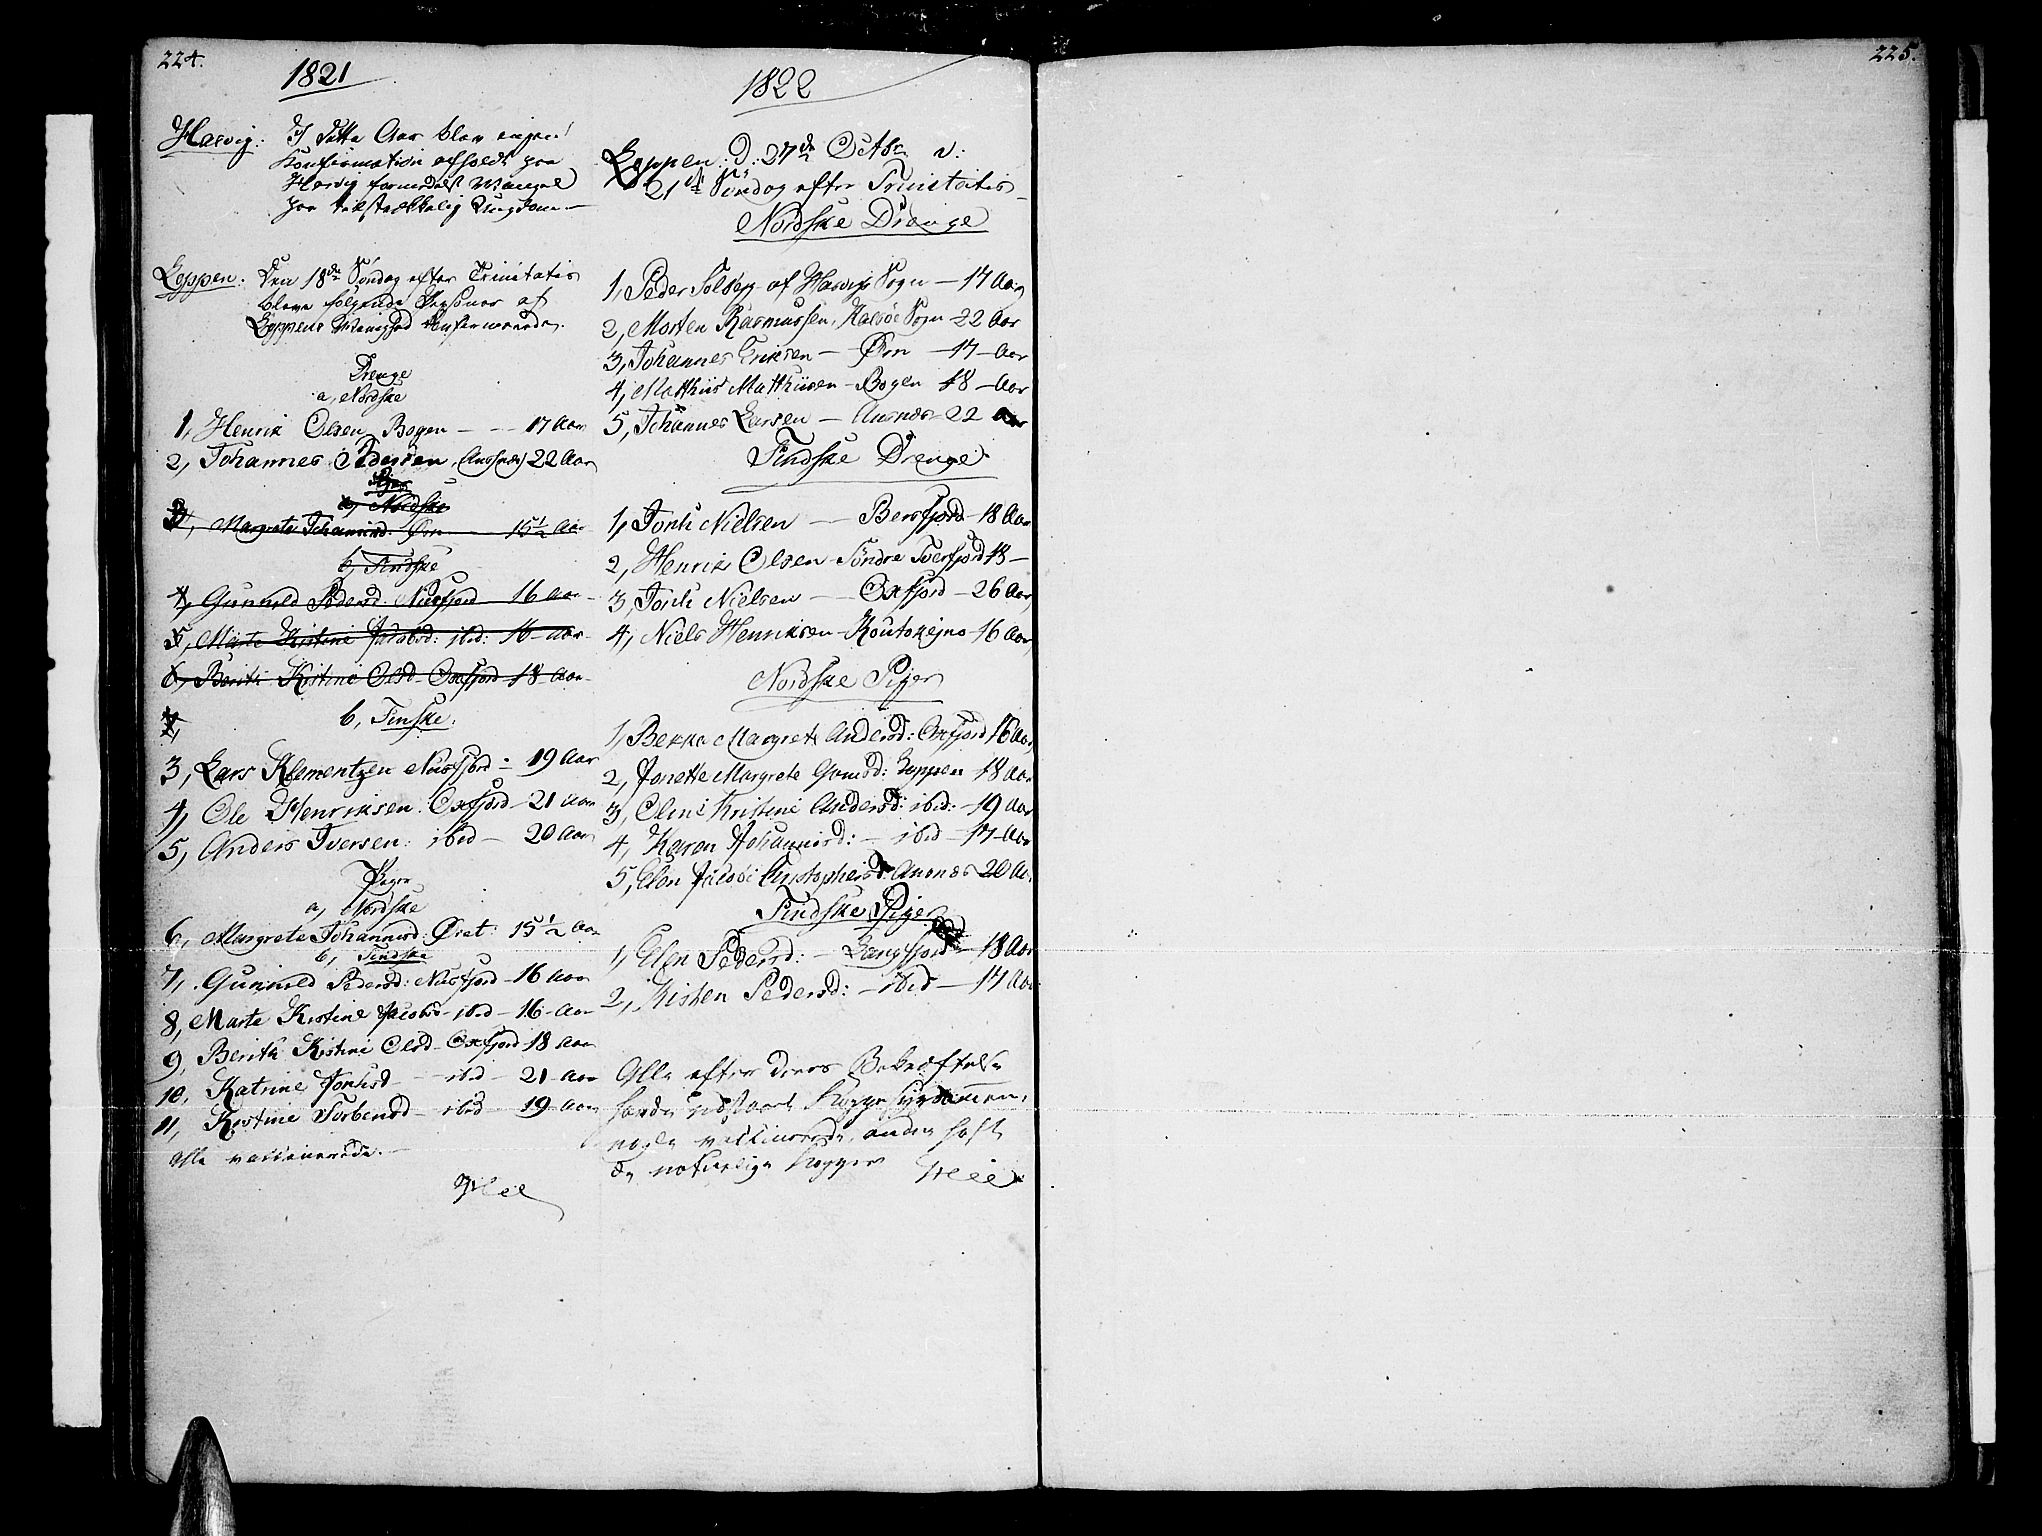 224.
1821
Hasvig: I dette Aar blev ingen
Konfirmation afholdt paa
Hasvig formedelst Mangel
paa tilstrækkelig Ungdom.—
Loppen: Den 18de Søndag efter Trinitatis
bleve følgende Personer af
Loppens Menighed konfirmerede.
Drenge
a, Nordske
1, Henrik Olsen Bogen — — 17 Aar
2, Johannes Pedersen (Ausnæs) 22 Aar
Piger
a, Nordske
3, Margrete Johannesd. Øen — 15½ Aar
b, Findske
4, Gunnild Pedersd. Nusfjord — 16 Aar
5, Marte Kistine Jacobsd: ibid: 16 — Aar
6, Berith Kistine Olsd — Oxfjord 18 — Aar
7,
b, Finske:
3, Lars Klementzen Nusfjord — 19 Aar
4, Ole Henriksen Oxfjord — 21 Aar
5, Anders Iversen: ibid — 20 Aar
Piger
a, Nordske
6, Margrete Johannesd: Øret: 15½ Aar
b, Findske
7, Gunnild Pedersd: Nusfjord — 16 Aar
8, Marte Kistine Jacobsd — ibid — 16 — Aar
9, Berith Kistine Olsd — Oxfjord 18 Aar
10, Katrine Jonhsd — ibid — 21 — Aar
11, Kistine Torbensd — ibid — 19 — Aar
Alle vaccinerede.—
1822
Loppen: d: 27de Octbr v:
21de Søndag efter Trinitatis
Nordske Drenge
1, Peder Solberg af Hasvigs Sogn — 17 Aar
2, Morten Rasmussen, Sogn — 22 Aar
3, Johannes Eriksen — Øen — 17 — Aar
4, Mathiis Mathiisen — Bogen 18 — Aar
5, Johannes Larsen — Ausnæs — 22 Aar
Findske Drenge
1, Jonh Nielsen — Bersfjord — 18 Aar
2, Henrik Olsen — Søndre Tverfjord 18 —
3, Jonh Nielsen — Oxfjord — 26 Aar
4, Niels Henriksen — Koutokejno — 16 Aar
Nordske Piger
1, Berka Margrete Andersd: Oxfjord 16 Aar
2, Jonette Margrete Loppen 18 Aar
3, Oline Kristine Andersd: ibid: — 19 Aar
4, Karen Johannesd: — ibid — 17 — Aar
5, Elen Jacobi Cristophersd: Ausnæs 20 Aar
Findske Piger
1, Elen Pedersd: — Langfjord — 18 Aar
2, Kisten Pedersd: — ibid — 17 Aar
Alle efter deres Bekræftelse
havde udstaaet Koppe Sygdommen,
nogle vaccinerede, andre havt
de naturlige Kopper
225.